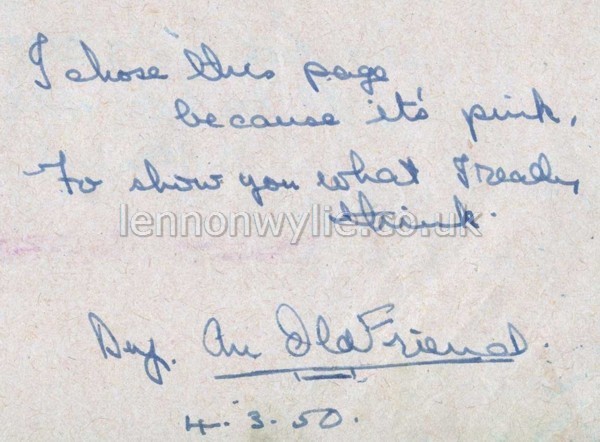 I chose this page
because it's pink,
To show you what I really
think.
lennonwylie.co.uk
An Old Friend.
4.3.50.